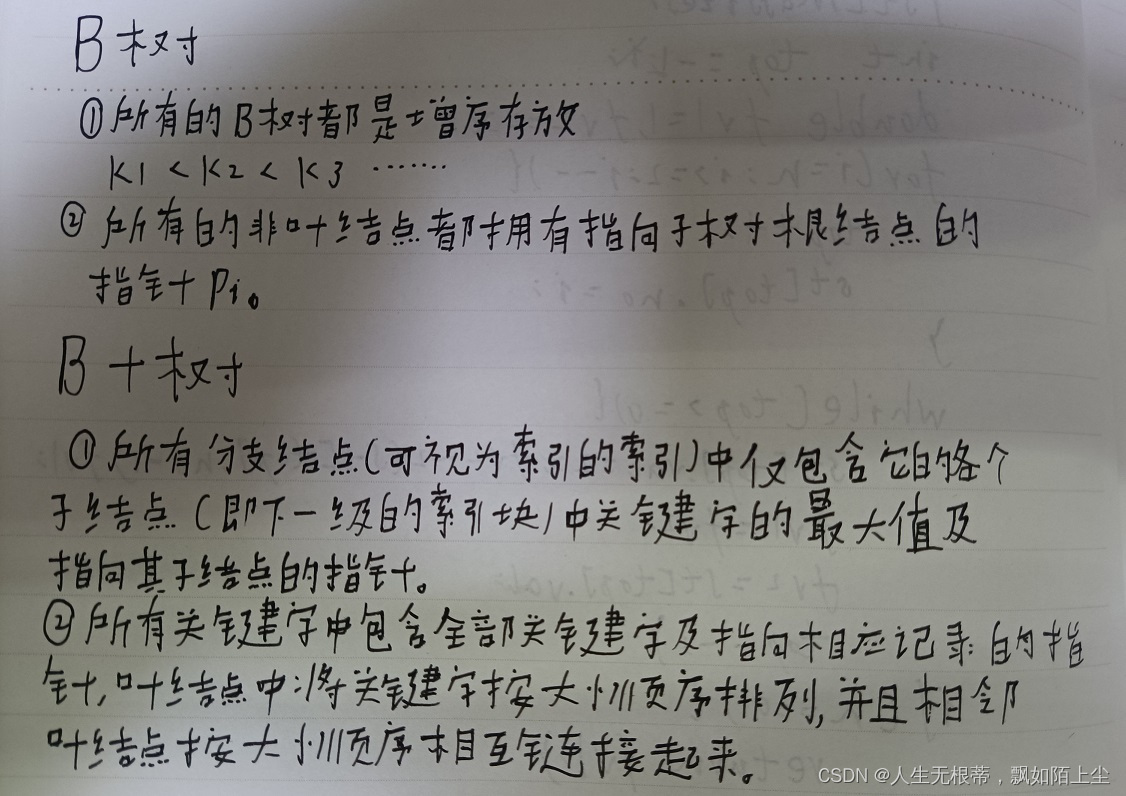 B树
①所有的B树都是增序存放
K1 < K2 < K3 ……
② 所有的非叶结点都拥有指向子树根结点的
指针 Pi。
B+树
①所有分支结点(可视为索引的索引)中仅包含它的各个
子结点(即下一级的索引块)中关键字的最大值及
指向其子结点的指针。
②所有关键字中包含全部关键字及指向相应记录的指
针,叶结点中将关键字按大小顺序排列,并且相邻
叶结点按大小顺序相互链连接起来。
CSDN @人生无根蒂，飘如陌上尘